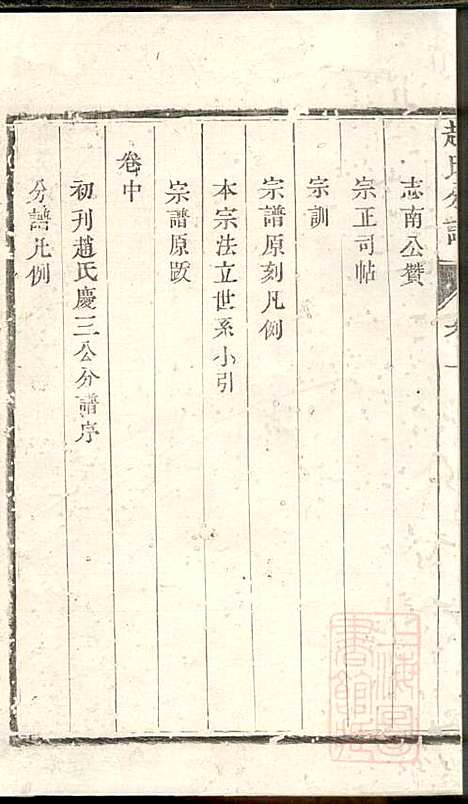 趙氏分譜
志南公贊
宗正司帖
宗訓
宗譜原刻凡例
本宗法立世系小引
宗譜原跋
卷中
初刊趙氏慶三公分譜序
分譜凡例
上海圖書館藏